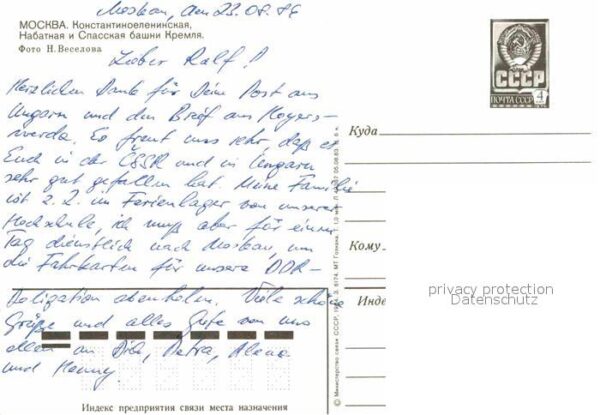 Moskau, den 23.08.86
МОСКВА. Константиноеленинская,
Набатная и Спасская башни Кремля.
Фото Н. Веселова
Lieber Ralf!
Herzlichen Dank für Deine Post aus
Ungarn und den Brief aus Hoyers-
werda. Es freut uns sehr, daß es
Euch in der ČSSR und in Ungarn
sehr gut gefallen hat. Meine Familie
ist z.Z. im Ferienlager von unserer
Hochschule, ich muß aber für einen
Tag dienstlich nach Moskau, um
die Fahrkarten für unsere DDR-
Deligation abzuholen. Viele schöne
Grüße und alles Gute von uns
allen an Dich, Petra,
und
СССР
ПОЧТА СССР 4
Куда
Кому
Инде
privacy protection
Datenschutz
© Министерство связи СССР.
Индекс предприятия связи места назначения